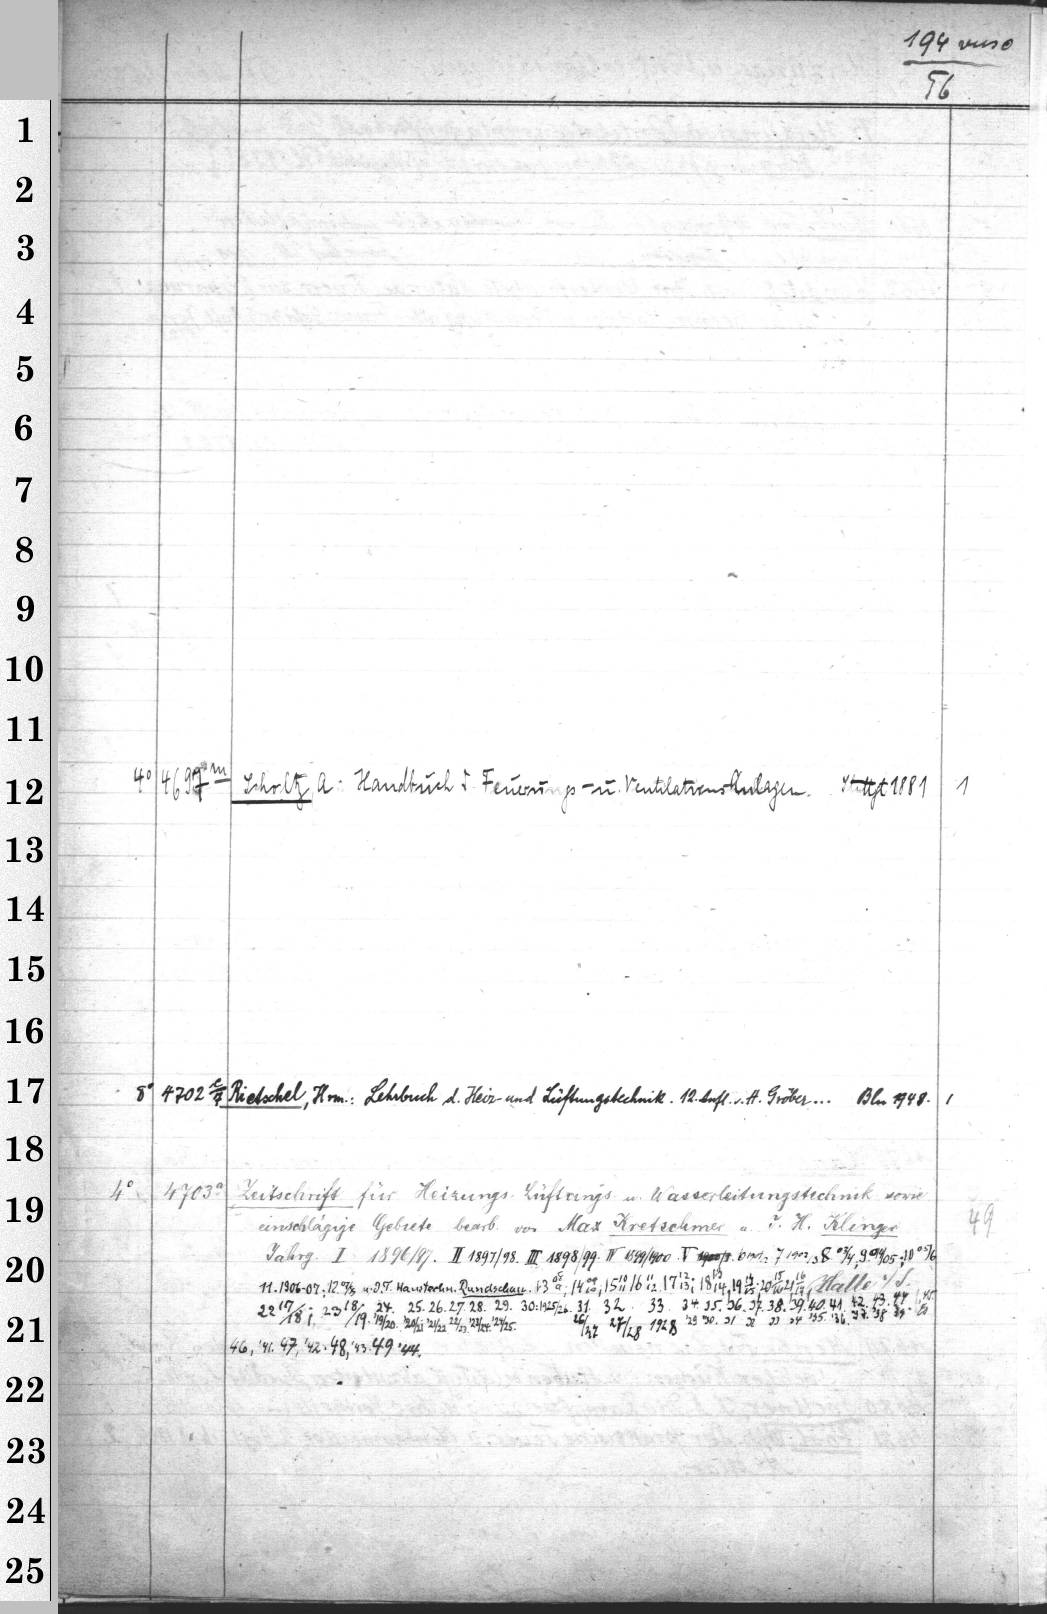 194 verso
56
1
2
3
4
5
6
7
8
9
10
11
12
4° 4697 m Scholtz, A: Handbuch d. Feuerungs- u. Ventilations-Anlagen. Stuttgt 1881 1
13
14
15
16
17
8° 4702 Rietschel, Hrm.: Lehrbuch d. Heiz- und Lüftungstechnik. 12. Aufl. v. H. Gröber... Bln 1948. 1
18
19
4° 4703a Zeitschrift für Heizungs- Lüftungs- u. Wasserleitungstechnik sowie
einschlägige Gebiete bearb. von Max Kretschmer u. J. H. Klinger 49
20
Jahrg. I 1896/97. II 1897/98. III 1898/99. IV 1899/1900. V
11. 1906-07. 12 07/8 u. d. T. Haustechn. Rundschau. 13 08/9, 14 09/10, 15 10/11, 16 11/12, 17 12/13, 18 13/14, 19 14/15, 20 15/16, 21 16/17, Halle a/S.
21
22 17/18, 23 18/19. 24. 25. 26. 27. 28. 29. 30. 1925/26. 31. 32. 33. 34. 35. 36. 37. 38. 39. 40. 41. 42. 43. 44.
19/20. 20/21 21/22 22/23. 23/24. 24/25. 26/27 27/28 1928 '29 '30. 31 32 33 34 '35. '36. '37. '38 39
46, '41. 47, '42. 48, '43. 49 '44.
22
23
24
25